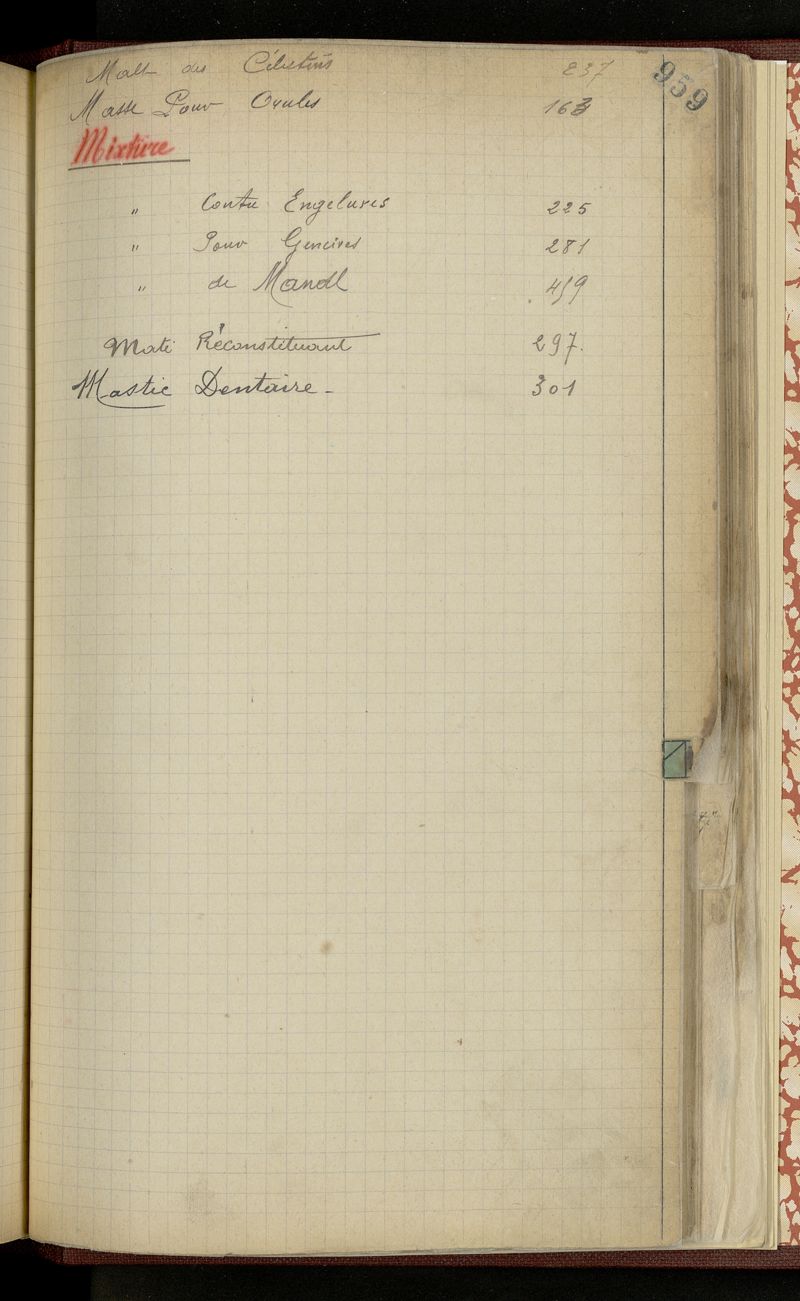 Malt des Célestins 237
959
Masse Pour Ovules 163
Mixture
" Contre Engelures 225
" Pour Gencives 281
" de Mandl 459
Maté Réconstituant 297.
Mastic Dentaire - 301